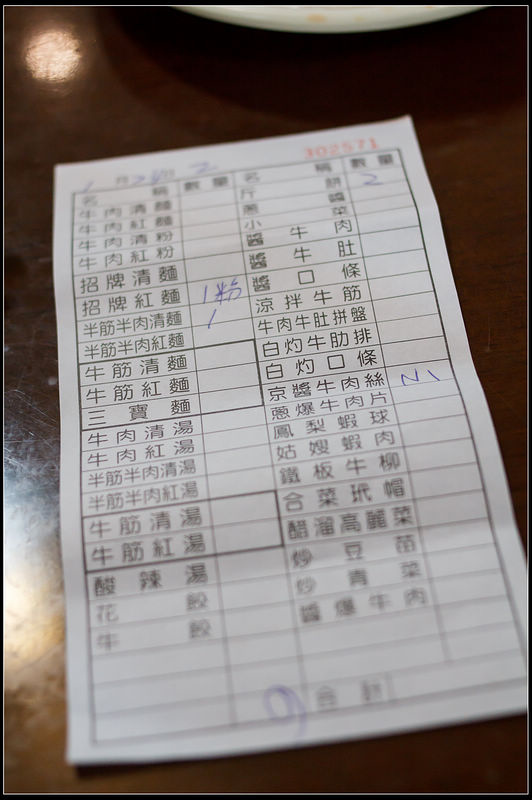 302571
1月24日 2
名稱 數量
牛肉清麵
牛肉紅麵
牛肉清粉
牛肉紅粉
招牌清麵
招牌紅麵 1粉
半筋半肉清麵 1
半筋半肉紅麵
牛筋清麵
牛筋紅麵
三寶麵
牛肉清湯
牛肉紅湯
半筋半肉清湯
半筋半肉紅湯
牛筋清湯
牛筋紅湯
酸辣湯
花餃
牛餃
名稱 數量
斤餅 2
蔥醬
小菜
醬牛肉
醬牛肚
醬口條
涼拌牛筋
牛肉牛肚拼盤
白灼牛肋排
白灼口條
京醬牛肉絲
蔥爆牛肉片
鳳梨蝦球
姑嫂蝦肉
鐵板牛柳
合菜玳帽
醋溜高麗菜
炒豆苗
炒青菜
醬爆牛肉
合計